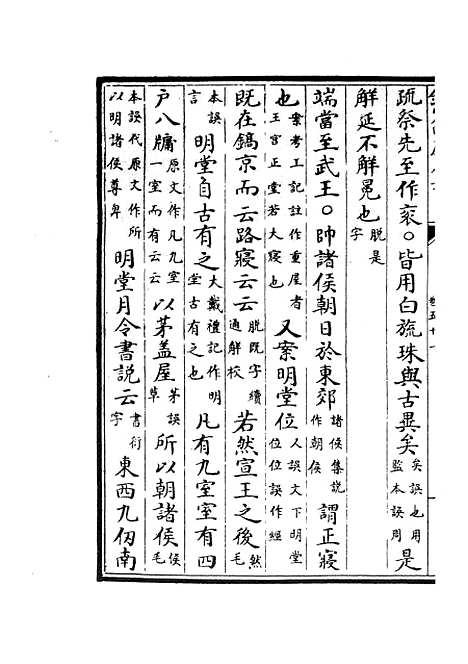 疏祭先至作衮○皆用白旒珠與古異矣矣誤也用監本誤周是
解延不解冕也脫是字
端當至武王○帥諸侯朝日於東郊諸侯集説作朝侯謂正寢
也案考工記註作重屋者王宫正堂若大寢也又案明堂位人誤文下明堂位位誤作經
既在鎬京而云路寢云云脱既字續通解校若然宣王之後然毛
本誤言明堂自古有之大戴禮記作明堂古有之也凡有九室室有四
户八牖原文作凡九室一室而有云云以茅盖屋茅誤草所以朝諸侯侯毛
本誤代原文作所以明諸侯尊卑明堂月令書説云書衍字東西九仞南
卷五十一